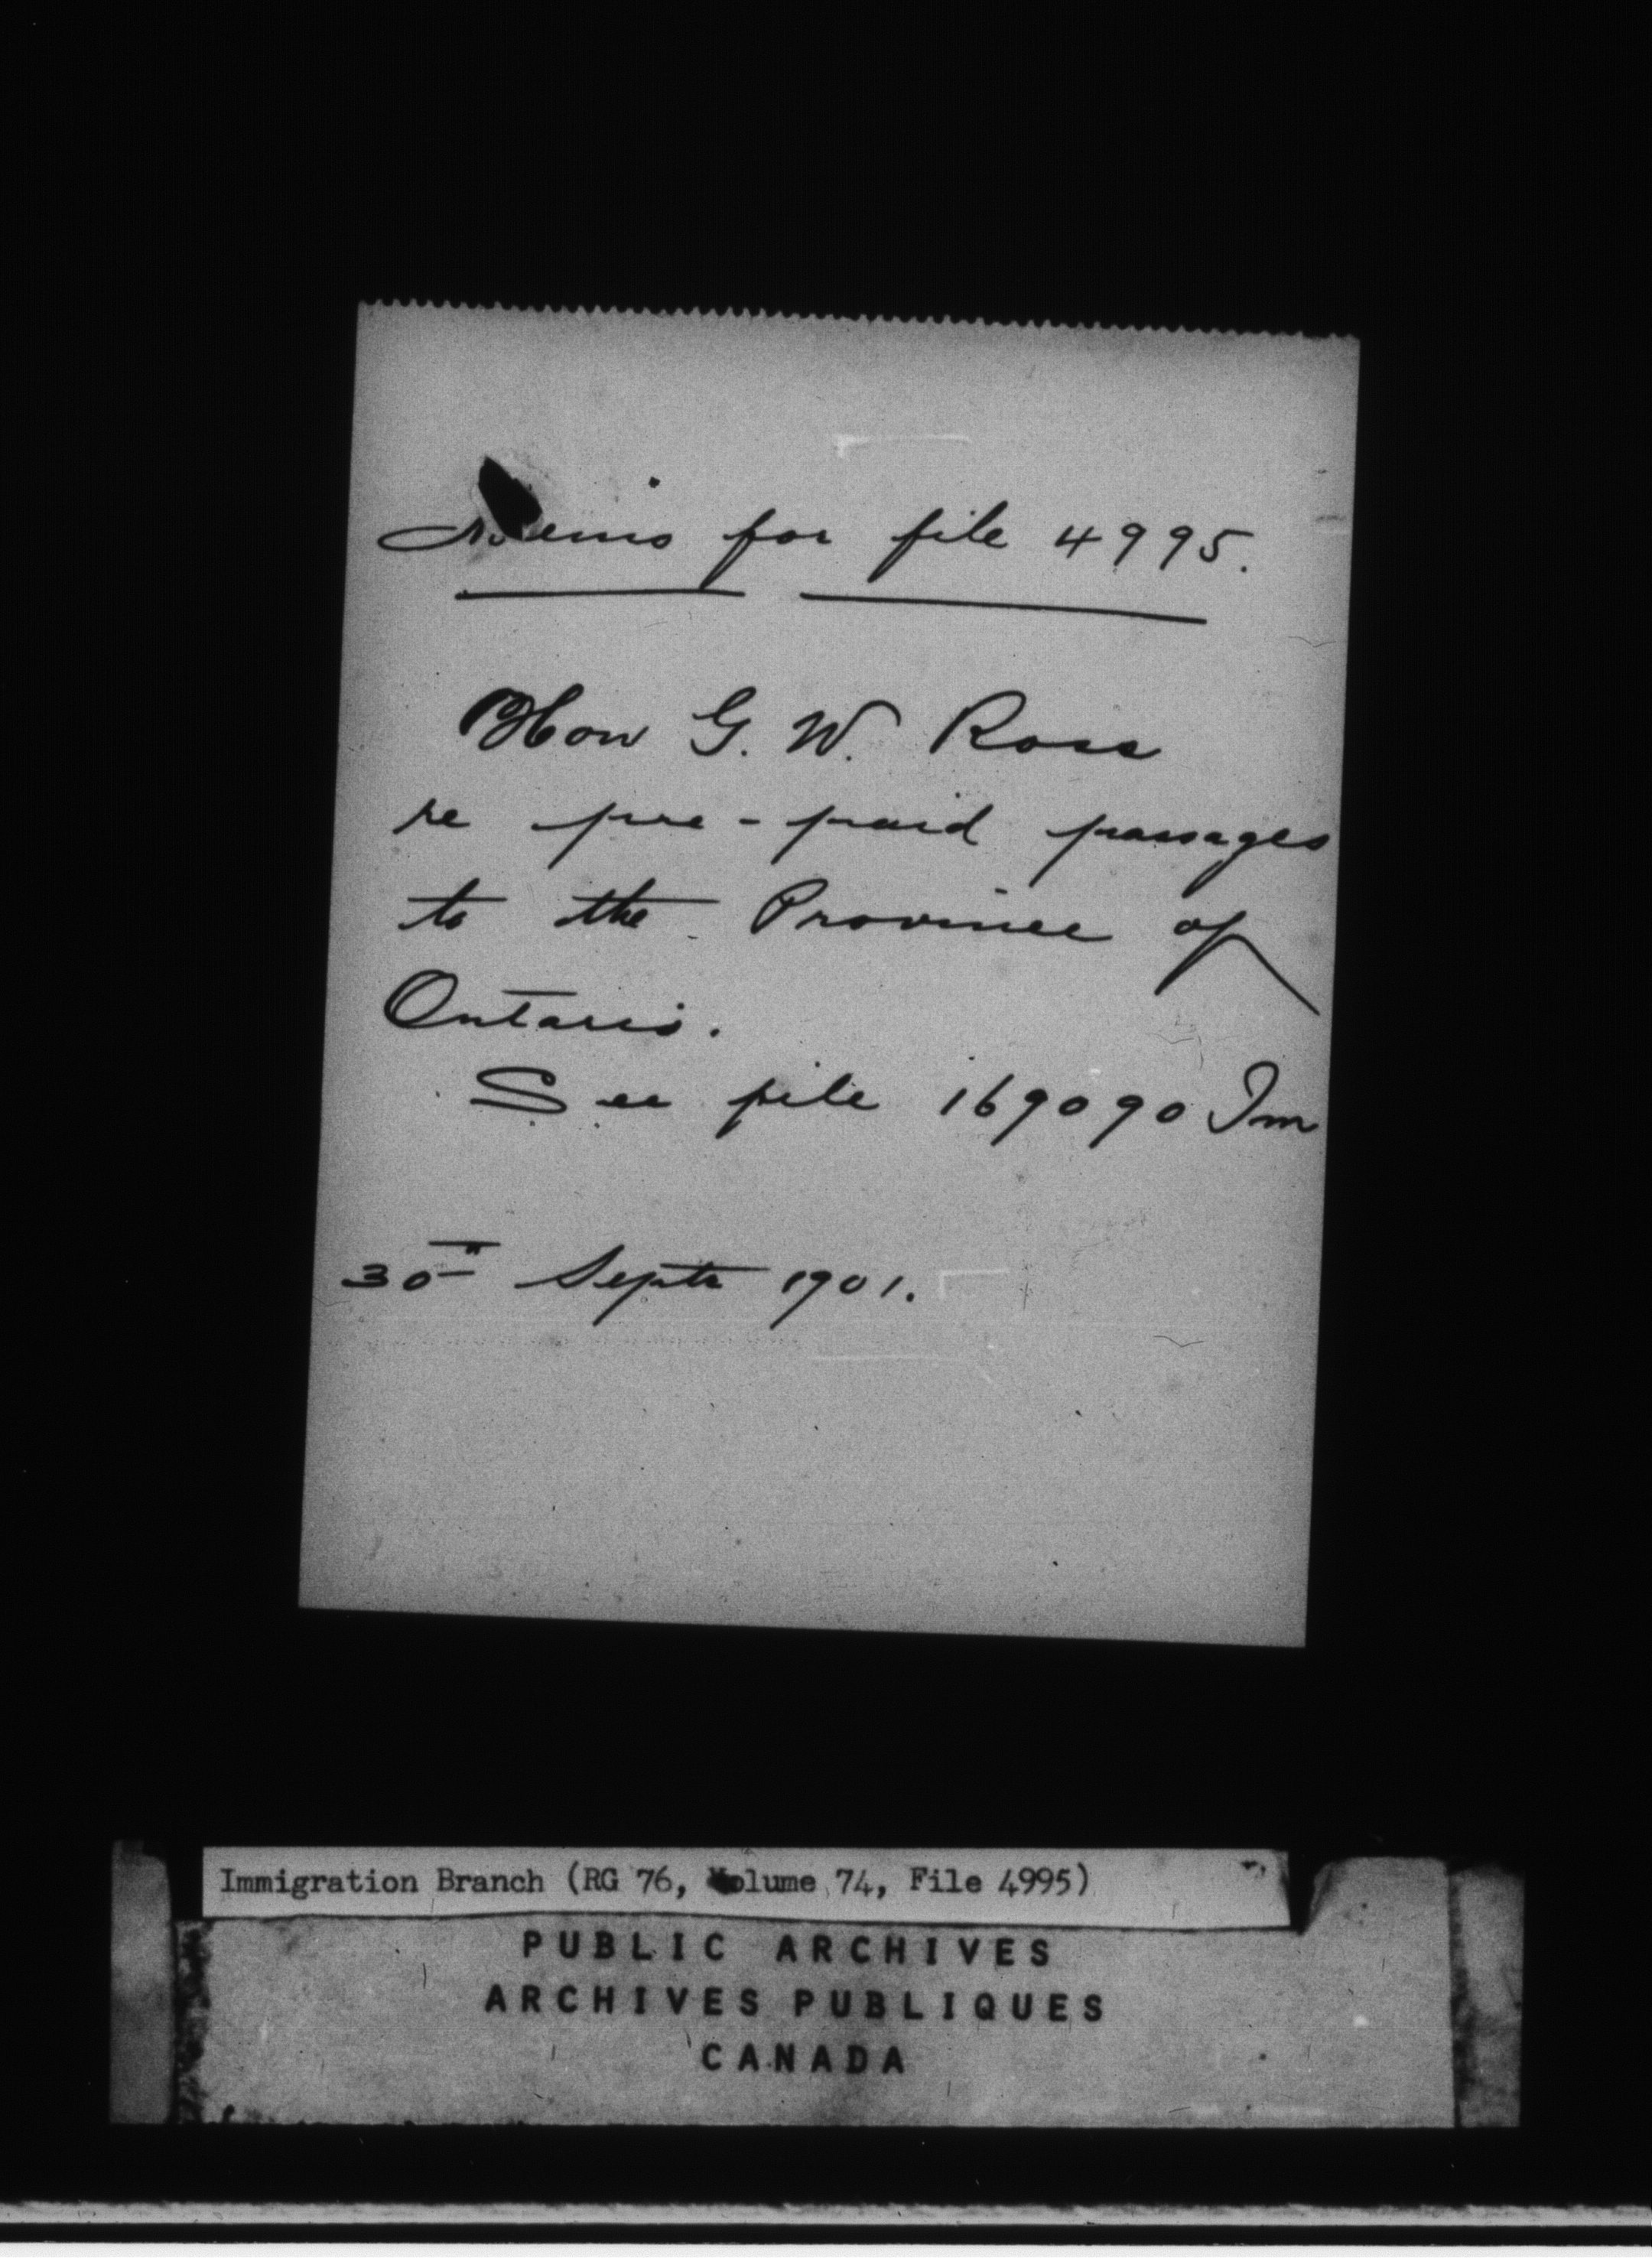 Memo for file 4995.
Hon G. W. Ross
re pre-paid passages
to the Province of
Ontario.
See file 169090 Im
30th Septr 1901.
Immigration Branch (RG 76, Volume 74, File 4995)
PUBLIC ARCHIVES
ARCHIVES PUBLIQUES
CANADA